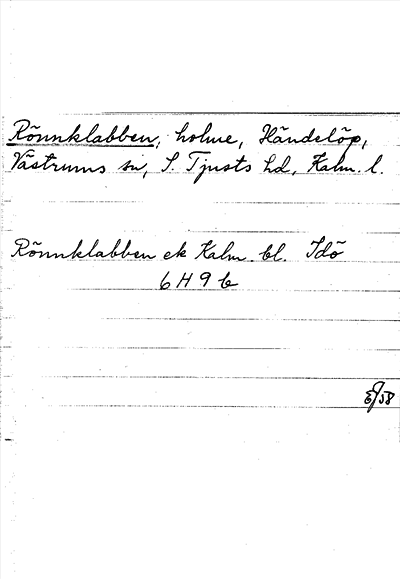 Rönnklabben, holme, Händelöp,
Västrums sn, S. Tjusts hd, Kalm. l.
Rönnklabben ek Kalm. bl. Idö
6 H 9 b
/58